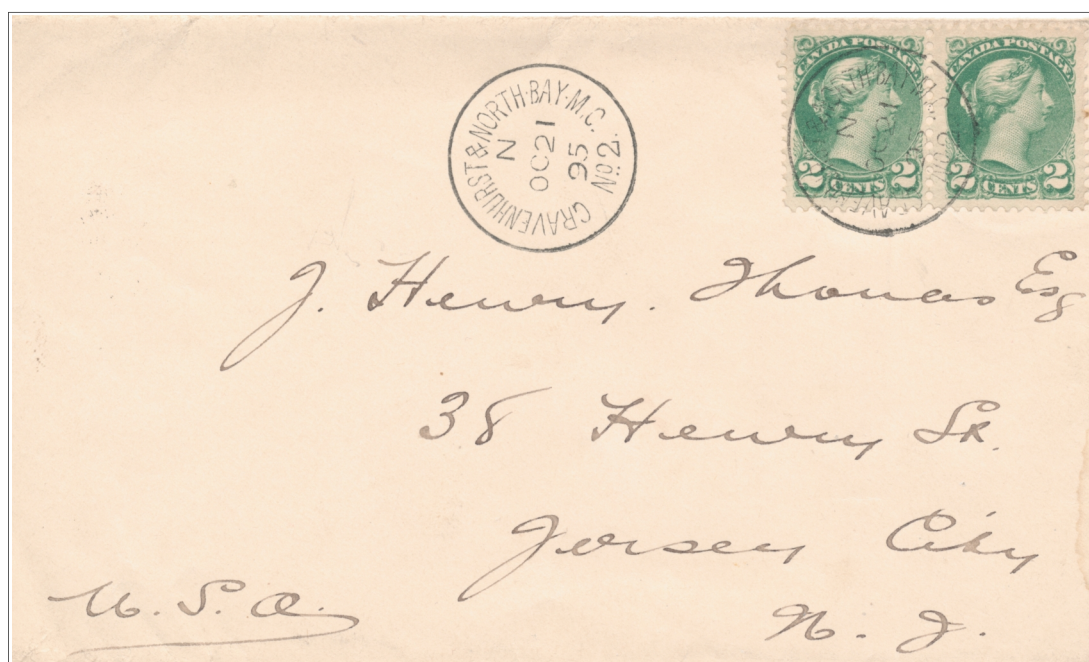 GRAVENHURST & NORTH·BAY·M.C. No 2.
N
OC 21
95
CANADA POSTAGE
2 CENTS 2
CANADA POSTAGE
2 CENTS 2
J. Henry. Thomas Esq
38 Henry St.
Jersey City
N. J.
U. S. A.